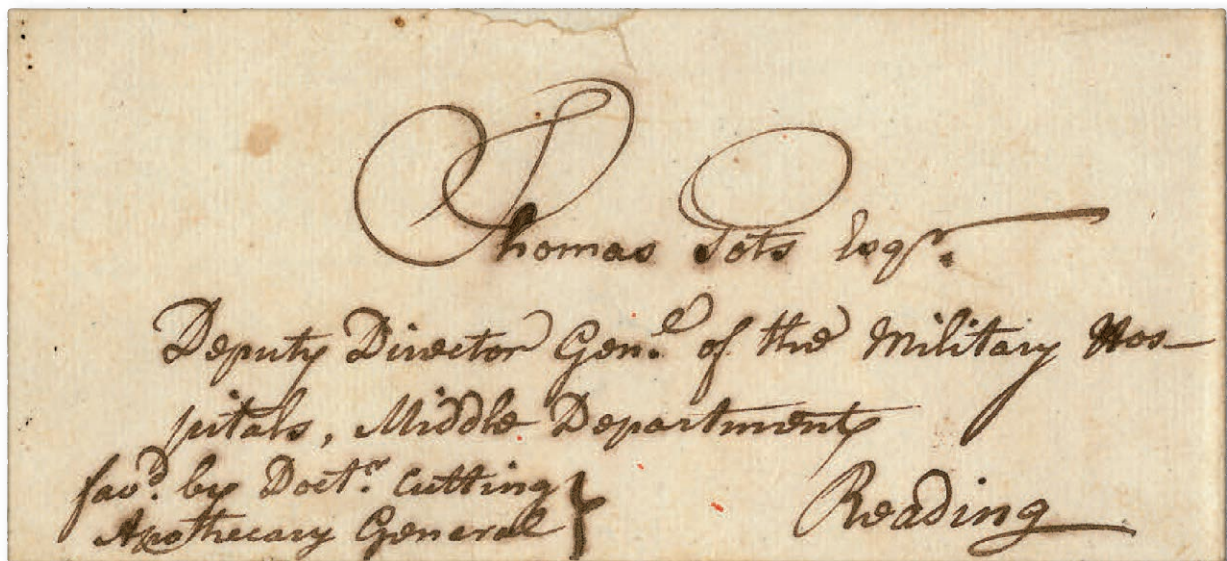 Thomas Pots Esqr.
Deputy Director Genl. of the Military Hos-
pitals, Middle Department
favd. by Doctr. Cutting }
Apothecary General
Reading